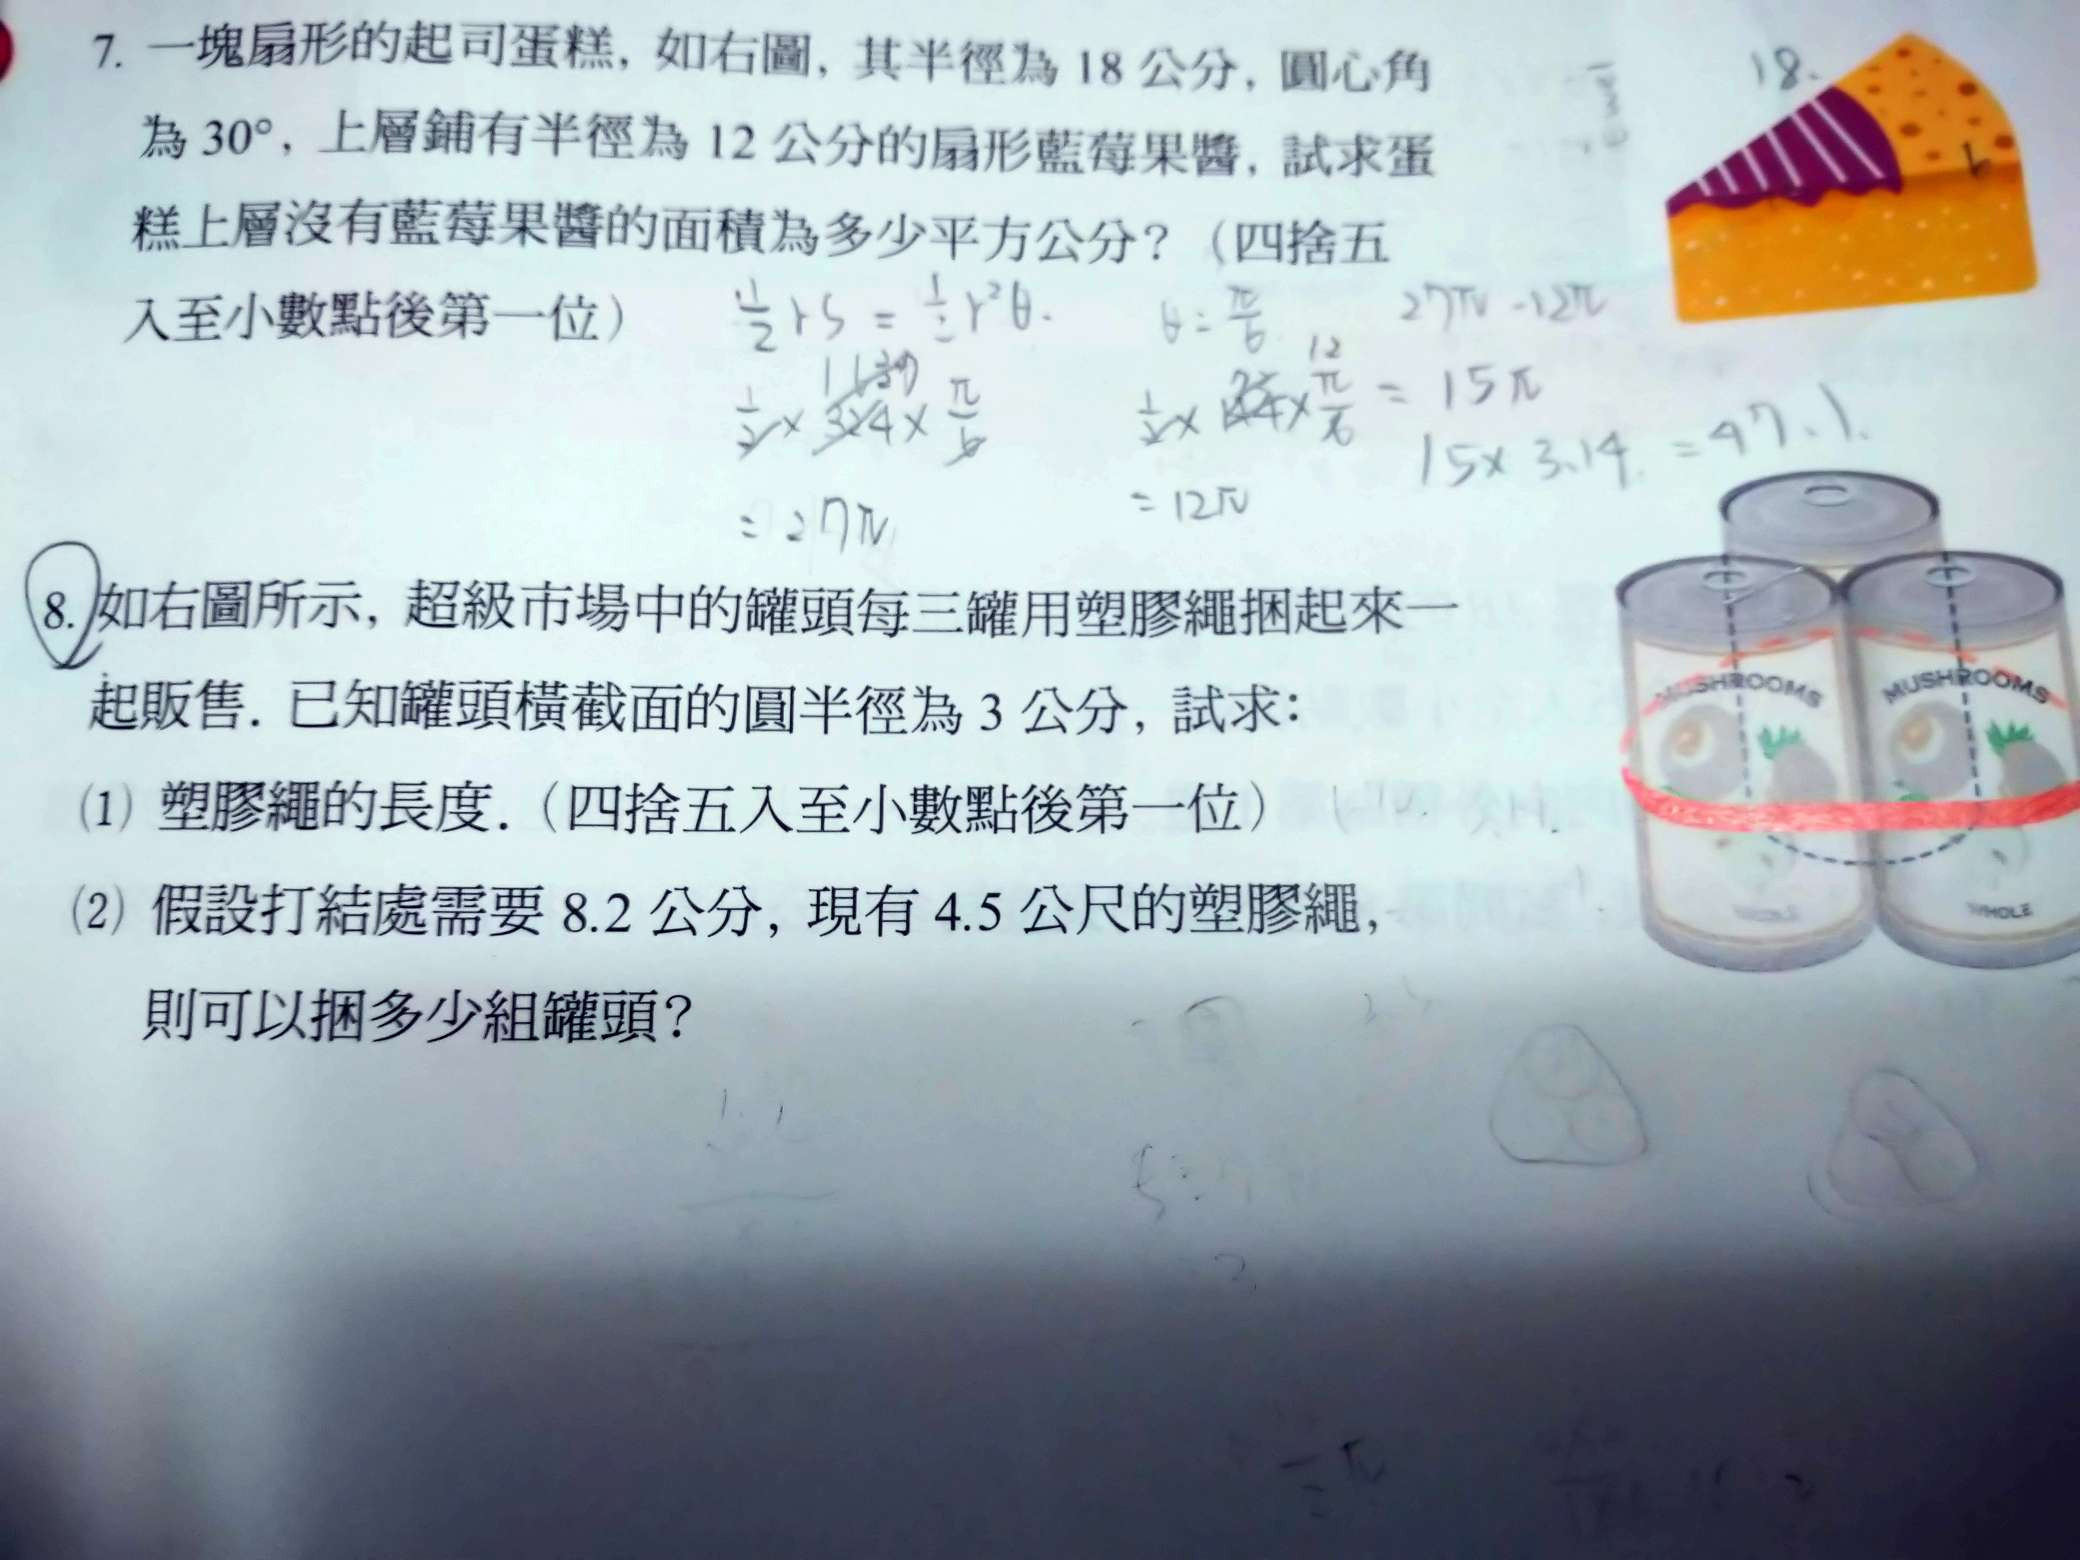 7. 一塊扇形的起司蛋糕, 如右圖, 其半徑為 18 公分, 圓心角
18.
為 30°, 上層鋪有半徑為 12 公分的扇形藍莓果醬, 試求蛋
糕上層沒有藍莓果醬的面積為多少平方公分? (四捨五
入至小數點後第一位)
½rS = ½r²θ.
θ = π/6
27π - 12π
= 15π
15 x 3.14 = 47.1.
= 27π
= 12π
8. 如右圖所示, 超級市場中的罐頭每三罐用塑膠繩捆起來一
起販售. 已知罐頭橫截面的圓半徑為 3 公分, 試求:
(1) 塑膠繩的長度. (四捨五入至小數點後第一位)
(2) 假設打結處需要 8.2 公分, 現有 4.5 公尺的塑膠繩,
則可以捆多少組罐頭?
MUSHROOMS
MUSHROOMS
WHOLE